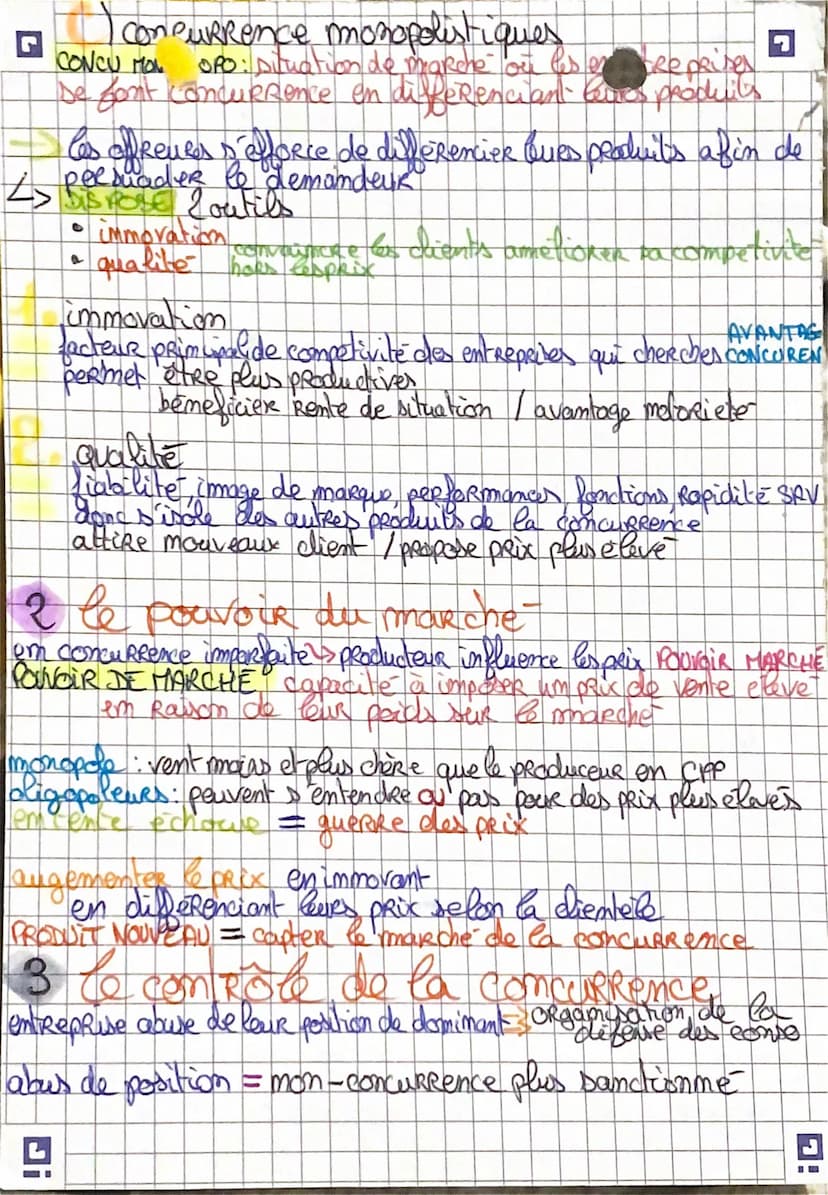 C) concurrence monopolistiques
CONCU MONOPO : situation de marché où les entreprises
se font concurrence en différenciant leurs produits
→ les offreurs s'efforce de différencier leurs produits afin de
persuader le demandeur
↳ DISPOSE 2 outils
• innovation
convaincre les clients améliorer sa competivité
• qualité hors les prix
1. innovation
AVANTAG
facteur principal de competivité des entreprises qui cherches CONCUREN
permet être plus productives
beneficier rente de situation / avantage notoriete
2. qualité
fiabilité, image de marque, performances, fonctions, rapidité SAV
donc s'isole des autres produits de la concurrence
attire nouveaux client / propose prix plus élevé
2 le pouvoir du marché
en concurrence imparfaite ↳ producteur influence les prix POUVOIR MARCHÉ
POUVOIR DE MARCHÉ capacité à imposer un prix de vente élevé
en raison de leur poids sur le marché
monopole : vent moins et plus chère que le produceur en CPP
oligopoleurs : peuvent s'entendre ou pas pour des prix plus élevés
entente échoue = guerre des prix
augementer le prix en innovant
en différenciant leurs prix selon la clientèle
PRODUIT NOUVEAU = capter le marché de la concurrence
3 le contrôle de la concurrence
entreprise abuse de leur position de dominant → organisation de la
défense des conso
abus de position = non-concurrence plus sanctionné